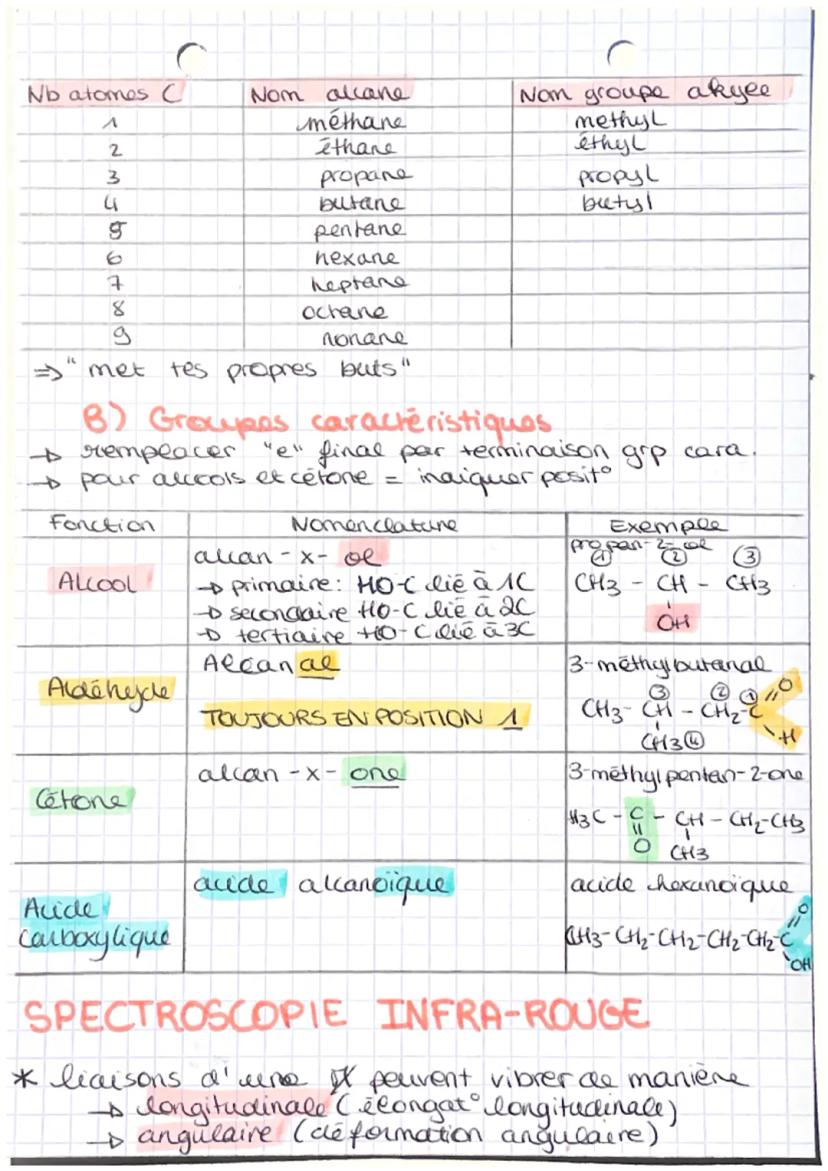 Nb atomes C Nom alcane Nom groupe alkyle
1 méthane methyl
2 éthane éthyl
3 propane propyl
4 butane butyl
5 pentane
6 hexane
7 heptane
8 octane
9 nonane
=> "met tes propres buts"
B) Groupes caractéristiques
→ remplacer "e" final par terminaison grp cara.
→ pour alcools et cétone = indiquer posit°
Fonction Nomenclature Exemple
Alcool
alcan - x - ol
→ primaire: HO-C lié à 1C
→ secondaire HO-C lié à 2C
→ tertiaire HO-C lié à 3C
propan-2-ol
① ② ③
CH3 - CH - CH3
OH
Aldéhyde
Alcanal
TOUJOURS EN POSITION 1
3-méthylbutanal
③ ② ① O
CH3 - CH - CH2-C
H
CH3 ④
Cétone
alcan - x - one
3-méthylpentan-2-one
H3C - C - CH - CH2-CH3
O CH3
Acide
carboxylique
acide alcanoïque
acide hexanoïque
O
CH3-CH2-CH2-CH2-CH2-C
OH
SPECTROSCOPIE INFRA-ROUGE
* liaisons d'une peuvent vibrer de manière
→ longitudinale (élongat° longitudinale)
→ angulaire (déformation angulaire)